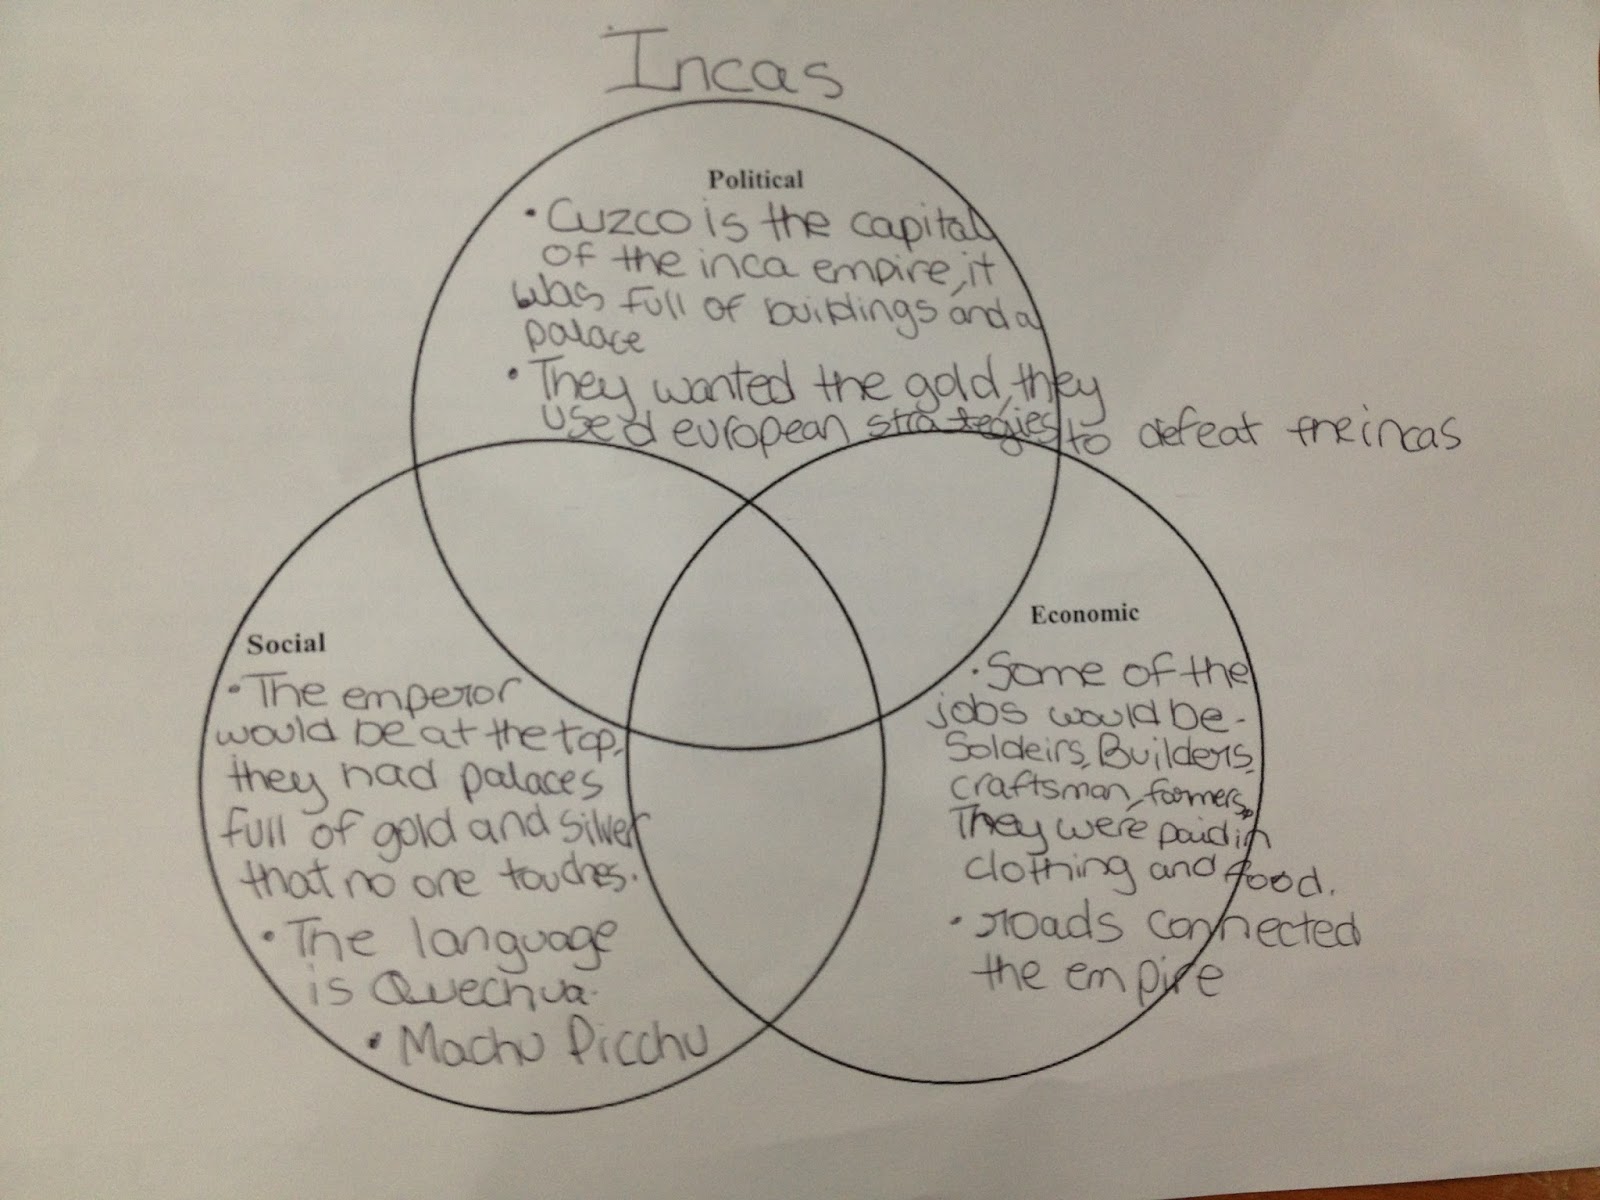 Incas
Political
• Cuzco is the capital
of the inca empire, it
was full of buildings and a
palace
• They wanted the gold, they
used european strategies to defeat the incas
Social
• The emperor
would be at the top,
they had palaces
full of gold and silver
that no one touches.
• The language
is Quechua.
• Machu Picchu
Economic
• Some of the
jobs would be -
Soldeirs, Builders,
craftsman, farmers,
They were paid in
clothing and food.
• roads connected
the empire